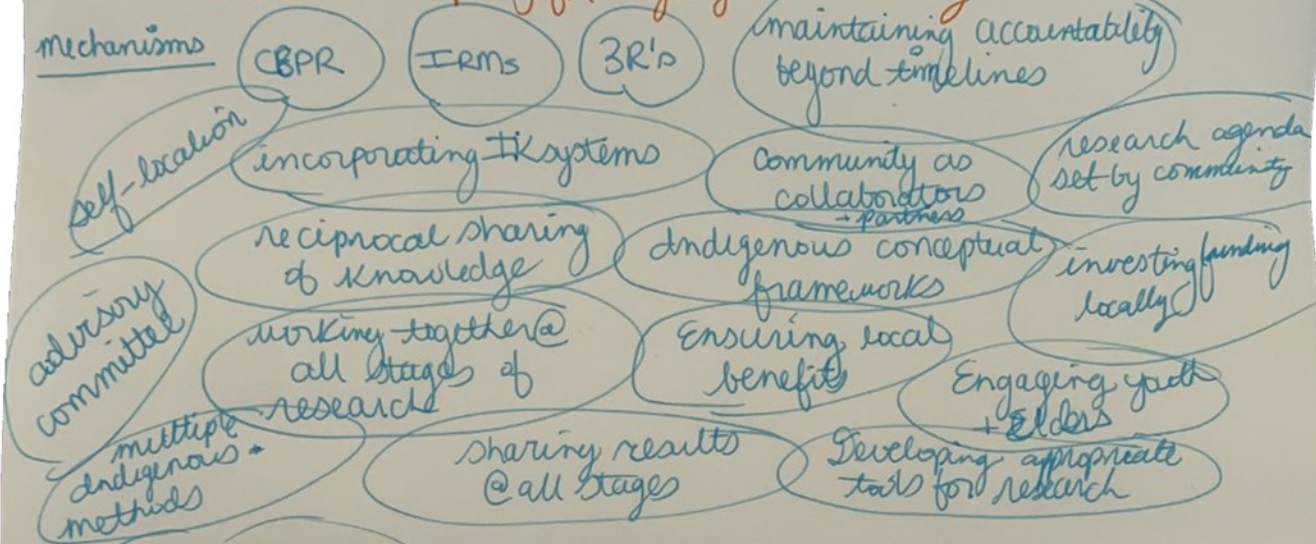 mechanisms
CBPR
IRMs
3R's
maintaining accountability
beyond timelines
self-location
incorporating IK systems
Community as
collaborators
+ partners
research agenda
set by community
reciprocal sharing
of knowledge
Indigenous conceptual
frameworks
investing funding
locally
advisory
committee
working together @
all stages of
research
Ensuring local
benefits
Engaging youth
+ Elders
multiple
Indigenous
methods
sharing results
@ all stages
Developing appropriate
tools for research